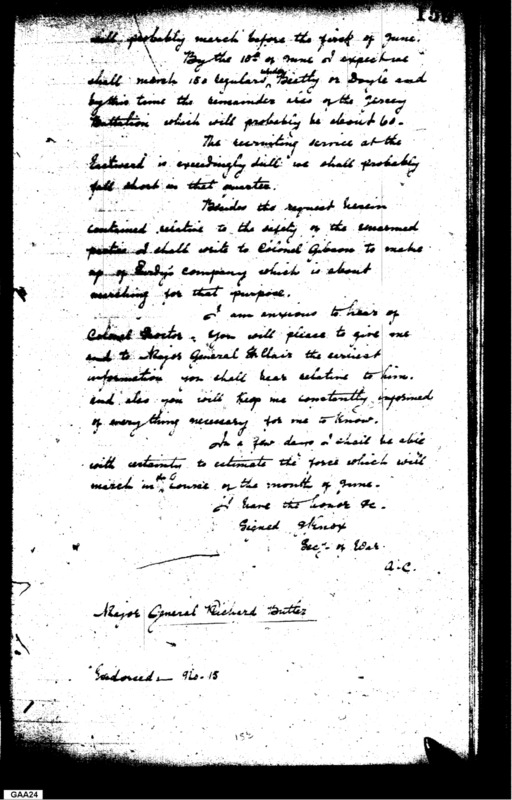 155
will probably march before the first of June.
By the 10th of June I expect we
shall march 150 regulars, under Beatty or Doyle and
by this time the remainder also of the Jersey
Battalion which will probably be about 60.
The recruiting service at the
Eastward is exceedingly dull we shall probably
fall short in that quarter.
Besides the request herein
contained relative to the safety of the unarmed
parties I shall write to Colonel Gibson to make
up of Purdy's company which is about
marching for that purpose.
I am anxious to hear of
Colonel Proctor. You will please to give me
and to Major General St Clair the earliest
information you shall hear relative to him.
and also you will keep me constantly informed
of every thing necessary for me to know.
In a few days I shall be able
with certainty to estimate the force which will
march in the course of the month of June.
I have the honor &c.
Signed HKnox
Secy of War.
A.C.
Major General Richard Butler
Endorsed - No. 15
155
GAA24